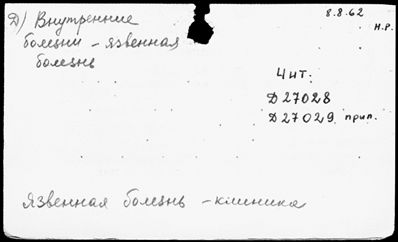 Д) Внутренние
болезни – язвенная
болезнь
8.8.62
Н.Р.
Чит:
Д 27028
Д 27029 прил.
Язвенная болезнь – клиника